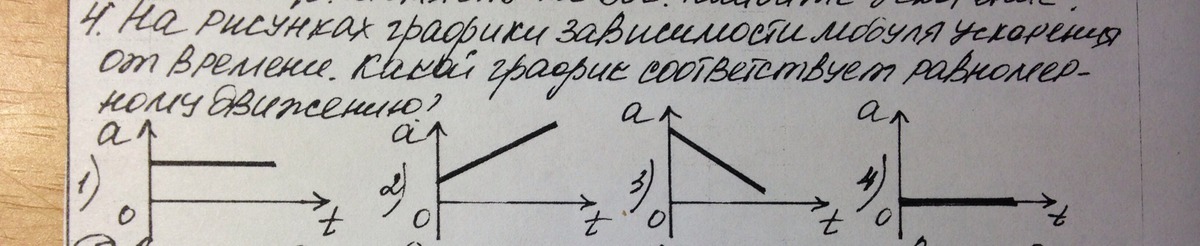 4. На рисунках графики зависимости модуля ускорения
от времени. Какой график соответствует равномер-
ному движению?
1) a 0 t 2) a 0 t 3) a 0 t 4) a 0 t